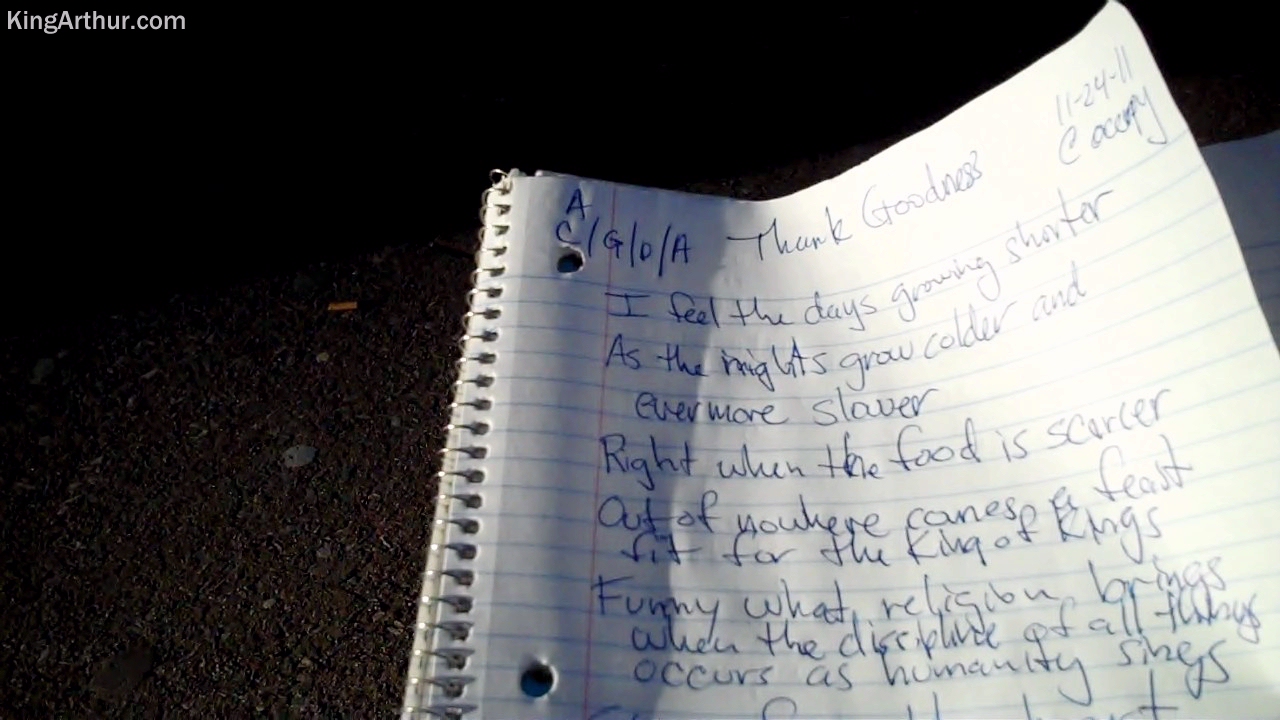 KingArthur.com
11-24-11
C occupy
A
C/G/D/A Thank Goodness
I feel the days growing shorter
As the nights grow colder and
evermore slower
Right when the food is scarcer
Out of nowhere comes a feast
fit for the King of Kings
Funny what religion brings
when the discipline of all things
occurs as humanity sings